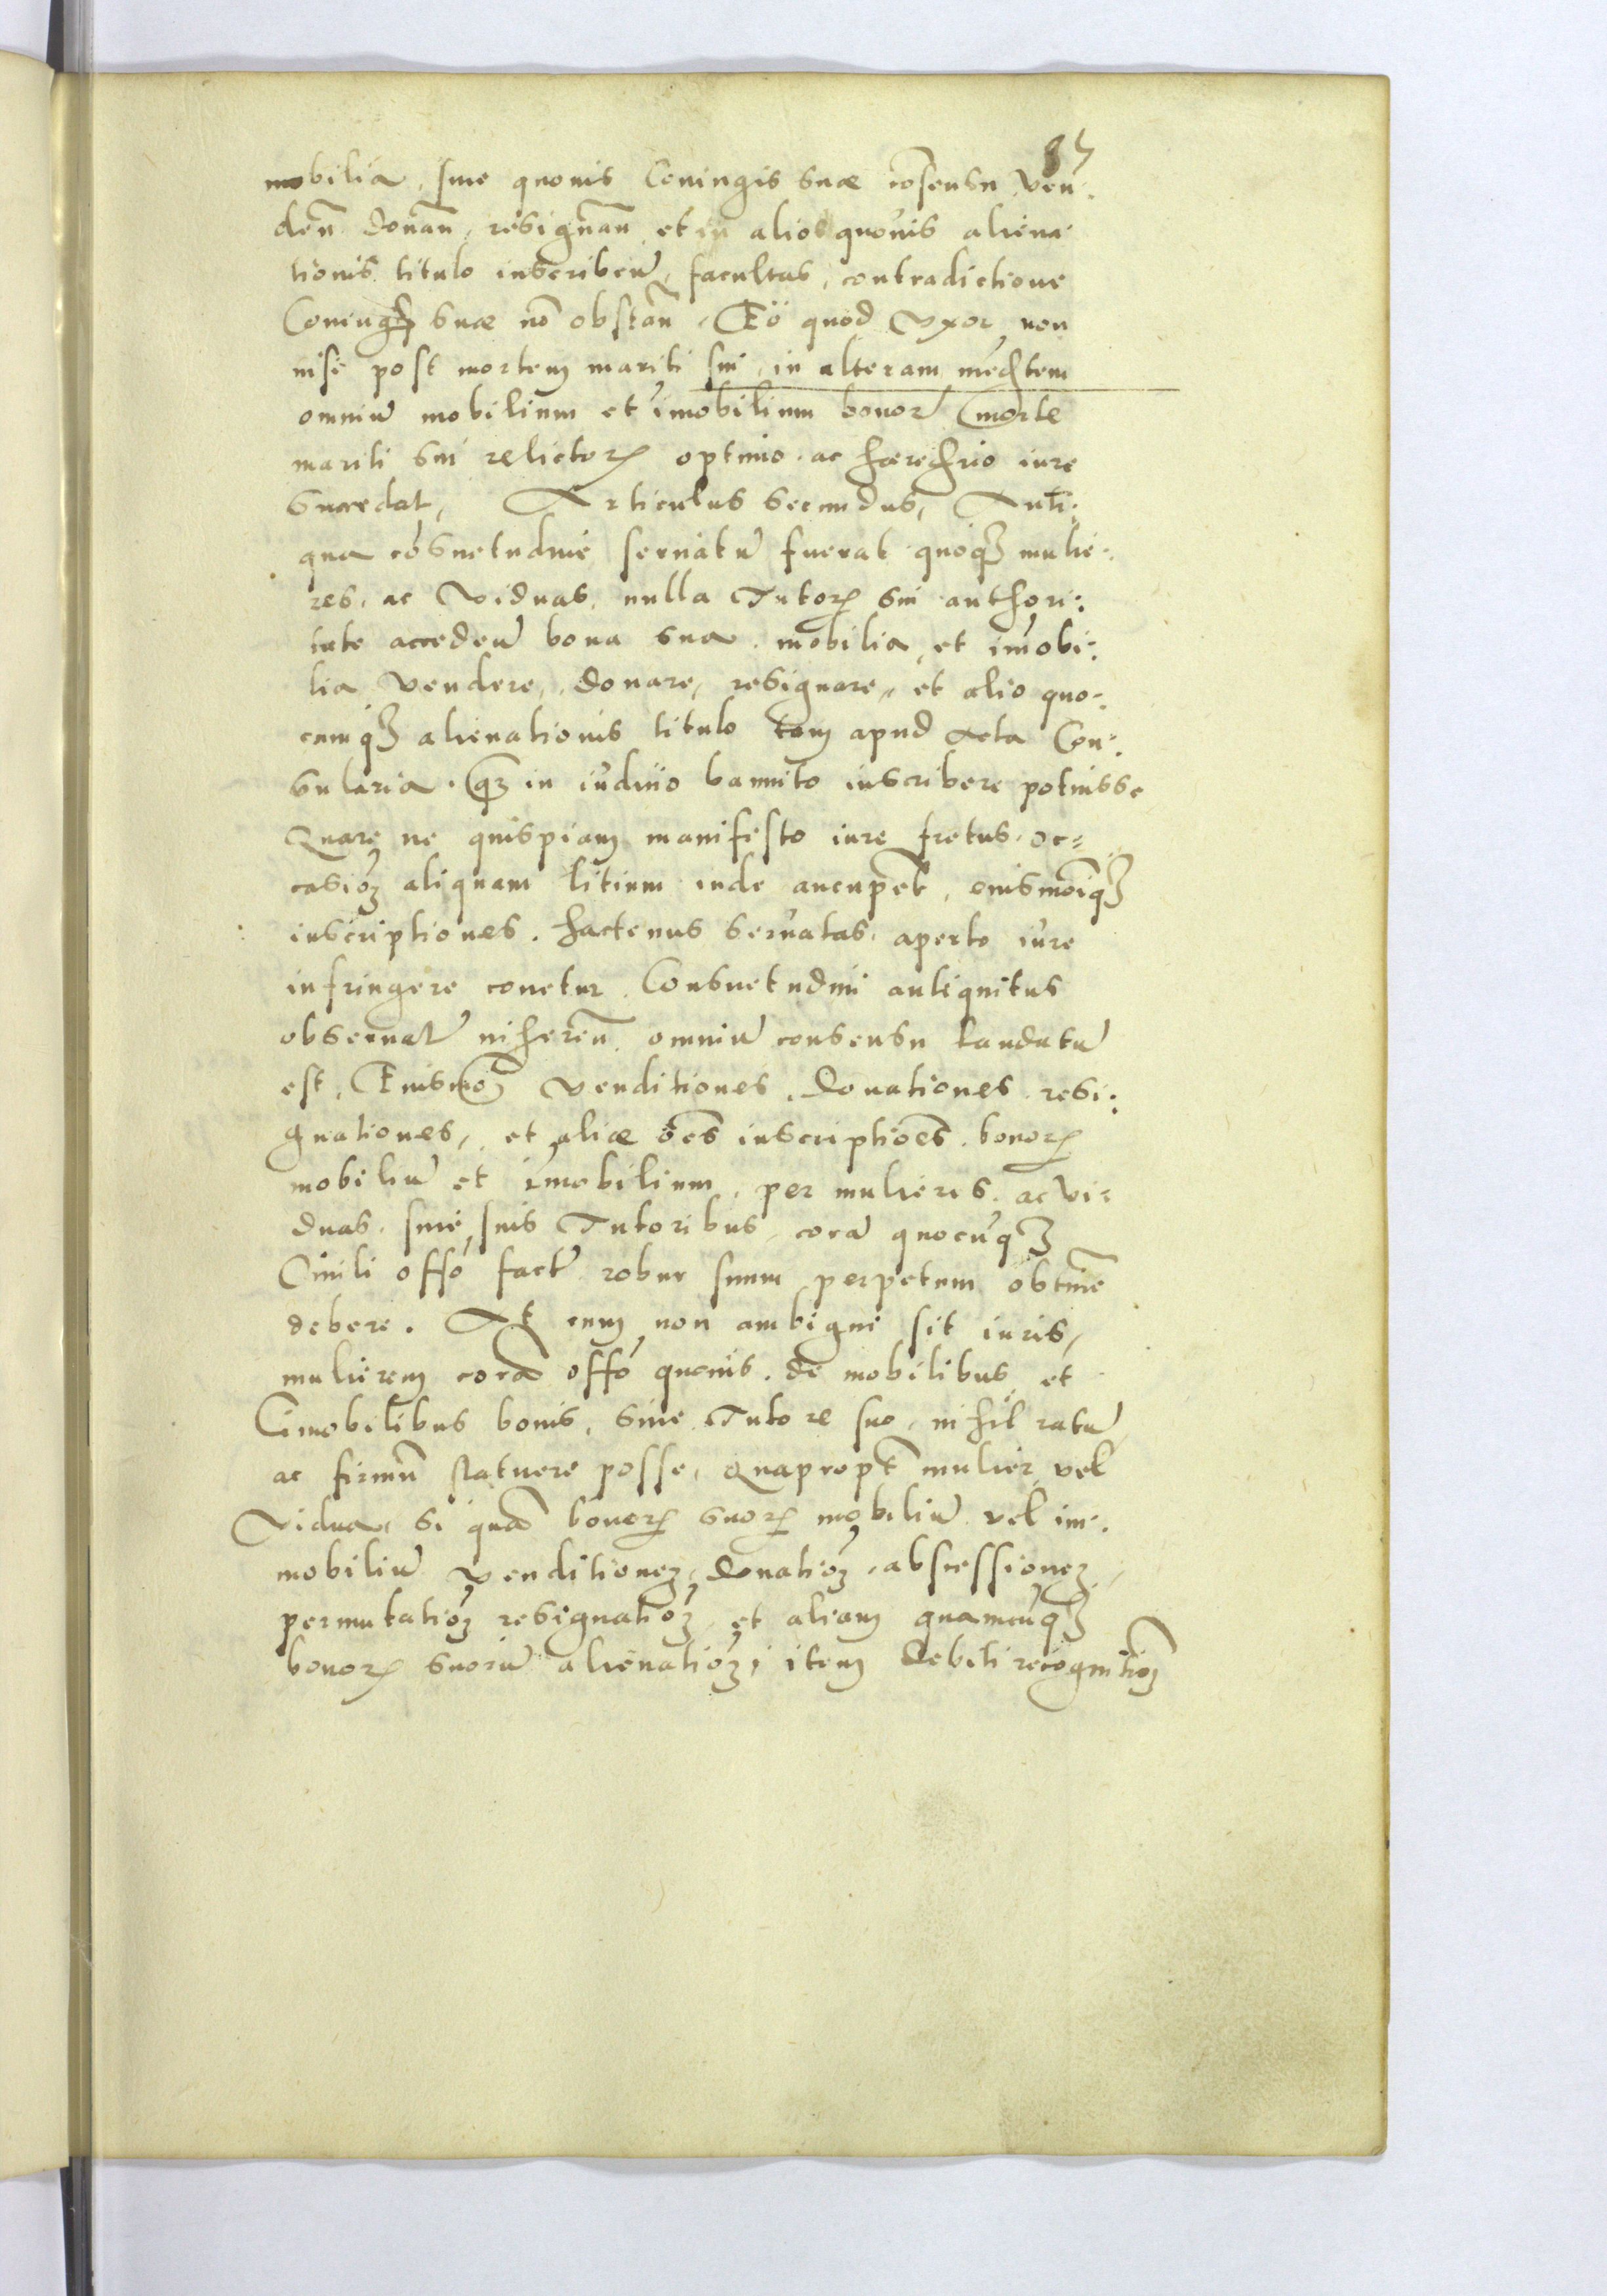 85
mobilia, sine quouis Coniugis suæ cõsensu, ven:
deñ donañ, resignañ et in alios quouis aliena
tionis titulo inscribeñ, facultas, contradictione
Coniugis suæ nõ obstañ. Eö quod Vxor non
nisi post mortem mariti sui, in alteram medtem
omniũ mobilium et im̃obilium bonor̃ morte
mariti sui relictorꝝ optimo ac hæredrio iure
succedat, Articulus secundus, Anti:
qua cõsuetudine seruatũ fuerat quoqꝫ mulie:
res, ac Viduas, nulla Tutorꝝ sui authori:
tate accedeñ bona sua mobilia, et im̃obi:
lia Vendere, donare, resignare, et alio quo:
cumqꝫ alienationis titulo tam apud Acta Con:
sularia. qꝫ in iudiuo bannito inscribere potuisse
Quare ne quispiam manifesto iure fretus oc=
casiõꝫ aliquam litium inde aucupet̃, eiusmõiqꝫ
inscriptiones. hactenus seruatas aperto iure
infringere conetur. Consuetudini antiquitus
obseruat̃ inhereñ omniũ consensu laudatũ
est, Eiusmõi Venditiones, Donationes, resi:
gnationes, et aliæ õẽs inscriptiões bonorꝝ
mobiliũ et im̃obilium, per mulieres ac Vi:
duas, sine suis Tutoribus, corã quocũqꝫ
Ciuili offõ fact̃ robur suum perpetuum obtinẽ
debere. At cum non ambigui sit iuris,
mulierem corã offõ quouis. de mobilibus et
im̃obilibus bonis, sine Tutore suo, nihil ratũ
ac firmũ statuere posse, Quapropt̃ mulier vel
Vidua, si quã bonorꝝ suorꝝ mobiliũ vel im:
mobiliũ venditionem, Donatiõꝫ, abscessionem,
permutatiõꝫ resignatiõꝫ, et aliam quamcũqꝫ
bonorꝝ suorũ alienatiõꝫ, item debiti recognitiõꝫ